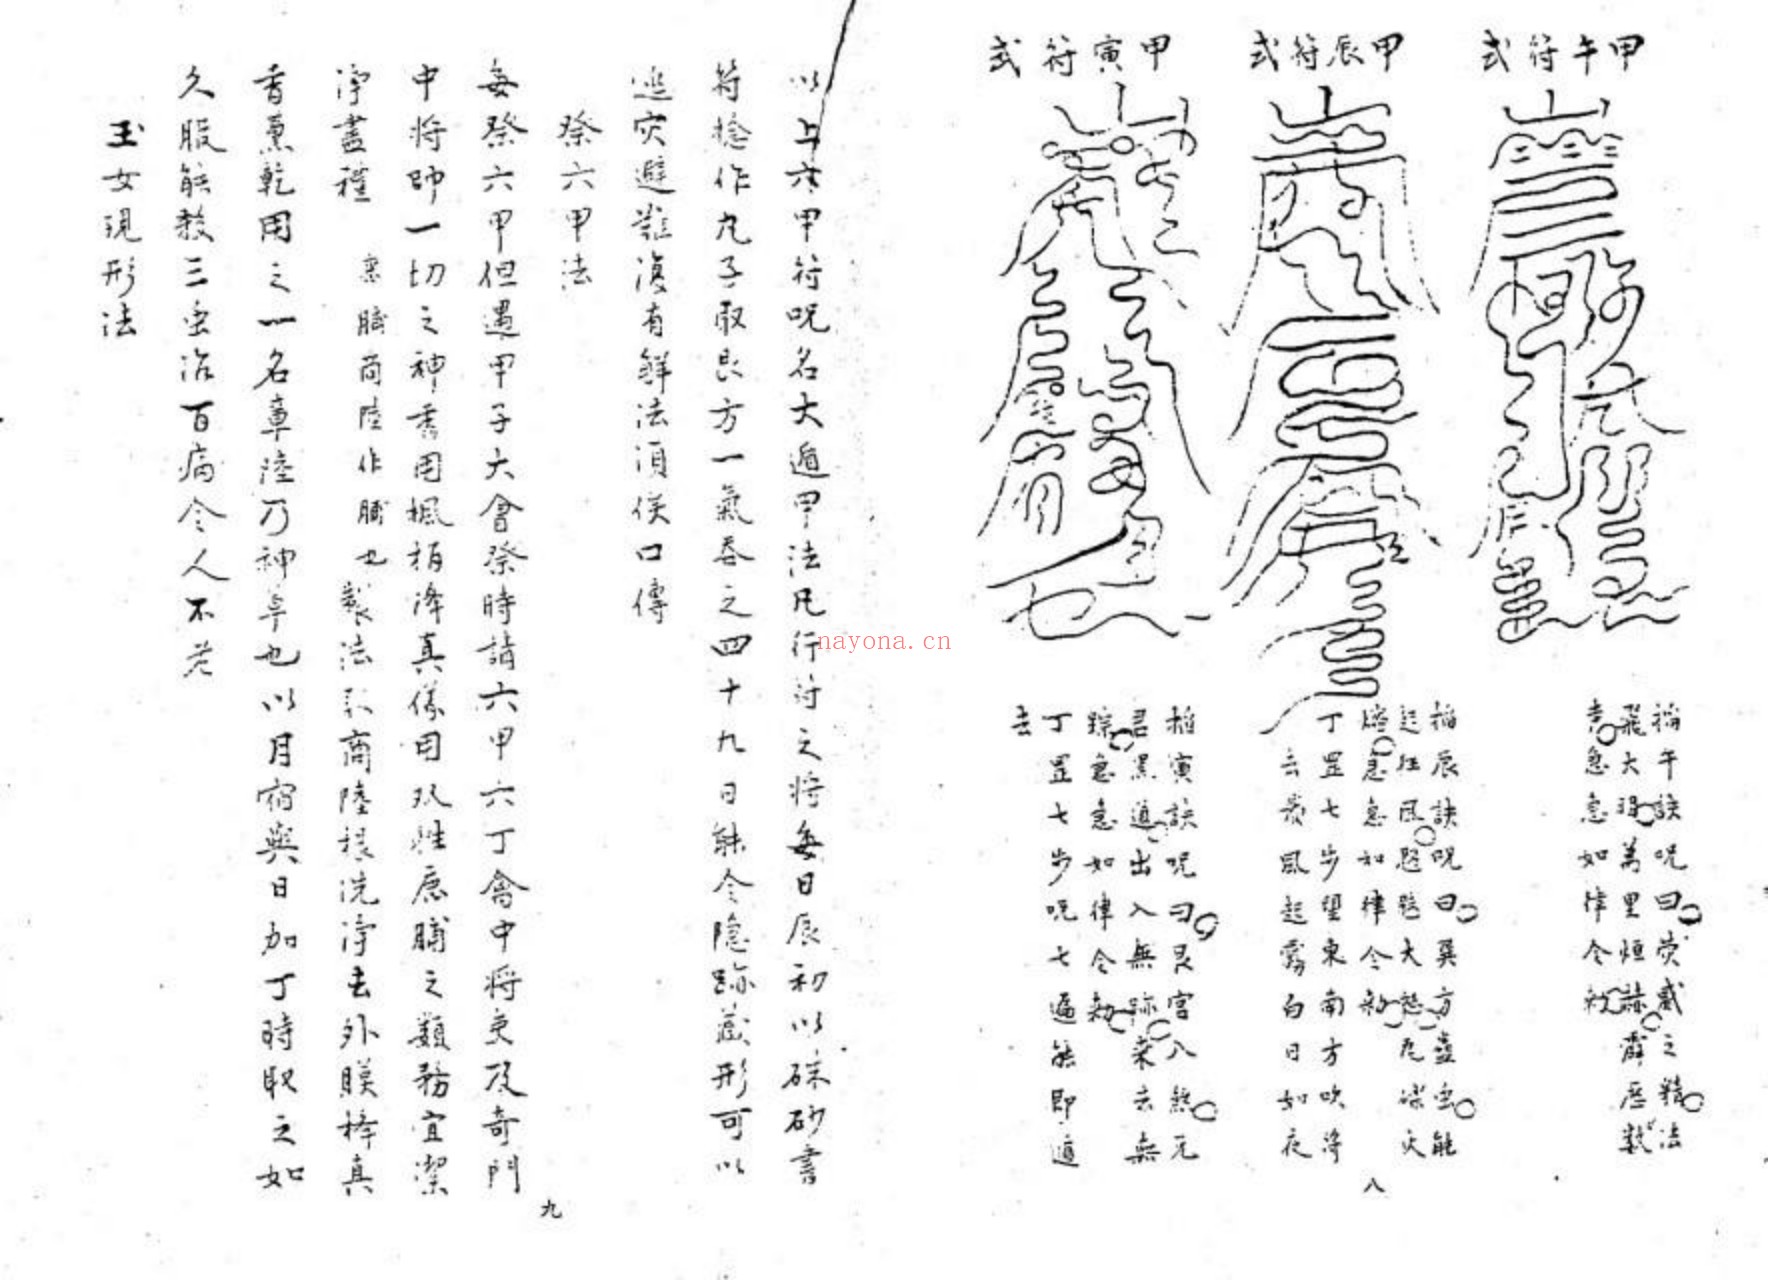 甲午符式
掐午訣呪曰熒惑之精法
飛大羽萬里烜赫霹靂數
急急如律令敕
甲辰符式
掐辰訣呪曰巽方蠱虫能
起狂風怒大
急急如律令勅
丁罡七步望東南方吹將
去歲風起霧白日如夜
甲寅符式
掐寅訣呪曰艮宮八煞元
君黑道出入無跡來去無
踪急急如律令勅
丁罡七步呪七遍能即遁
去
八
以上六甲符呪名大遁甲法凡行符之將每日辰初以硃砂書
符捻作九子取艮方一氣吞之四十九日能令隐跡藏形可以
逃灾避難復有鮮法須俟口傳
祭六甲法
每祭六甲但遇甲子大會祭時請六甲六丁會中將吏及奇門
中將帥一切之神香用楓栢降真儀用双牲鹿脯之類務宜潔
淨盡禮
脯商陸作脯也
製法取商陸根洗淨去外膜棒真
香熏乾用之一名章陸乃神草也以月宿與日加丁時取之如
久服能殺三虫治百病令人不老
玉女現形法
九
nayona.cn